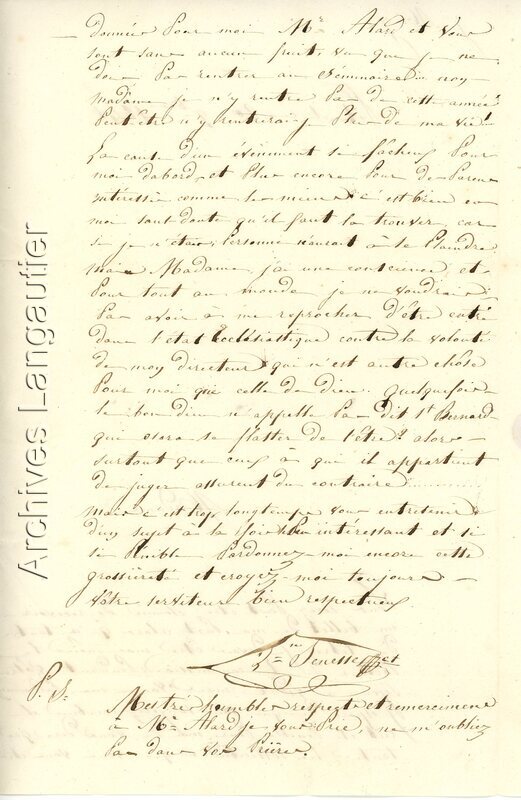 donnés Pour moi Mr Alard et vous
sont sans aucun fruit, vu que je ne
dois Pas rentrer au séminaire
madame je n'y rentre Pas de cette année
Peut être n'y rentrerai je Plus de ma vie!
La cause d'un événement si fâcheux Pour
moi dabord, et Plus encore Pour de Parens
intéressés comme les miens c'est bien en
moi sans doute qu'il faut la trouver, car
si je n'étais, Personne n'aurait à se Plaindre
mais Madame, j'ai une conscience et
Pour tout au monde je ne voudrais
Pas avoir à me reprocher d'être entré
dans l'état Ecclésiastique contre la volonté
de moy directeur qui n'est autre chose
Pour moi que celle de dieu. quelquefois
le bon dieu n'appelle Pas dit St Bernard
qui osera se flatter de l'être? alors
surtout que ceux à qui il appartient
de juger assurent du contraire
mais c'est trop longtemps vous entretenir
d'un sujet à la fois si Peu intéressant et si
si Pénible Pardonnez-moi encore cette
grossièreté et croyez-moi toujours
vôtre serviteur bien respectueux
P. S.
Mes très humbles respects et remerciment
à Mr Alard je vous Prie, ne m'oubliez
Pas dans vos Prières.
Archives Langautier